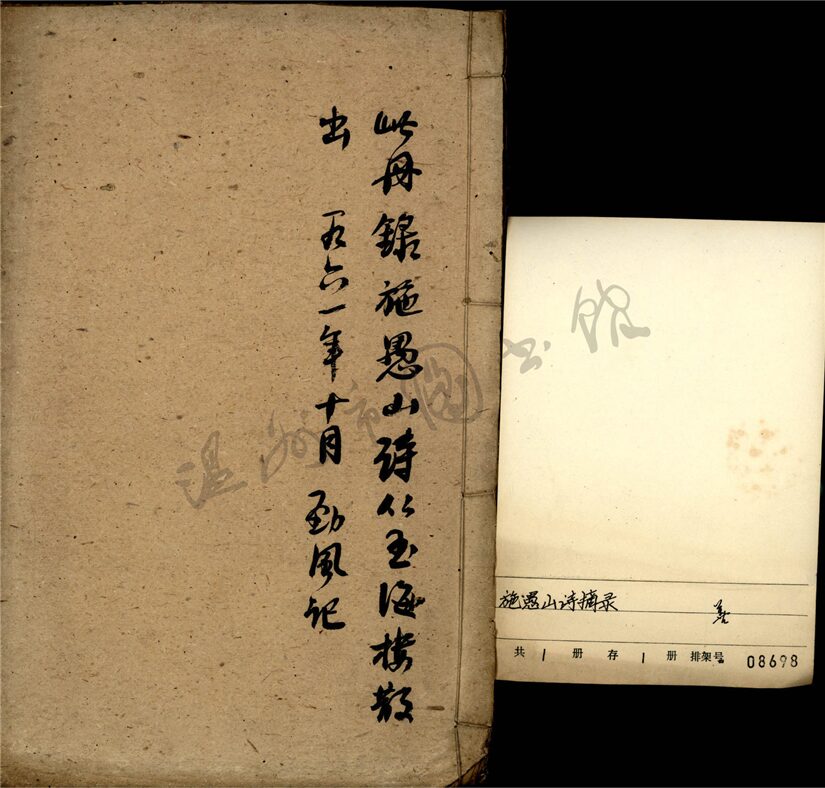 此册錄施愚山詩从玉海樓散
出 一九六一年十月 勁風记
温州市图书馆
施愚山诗摘录 善
共 1 册 存 1 册 排架号 08698